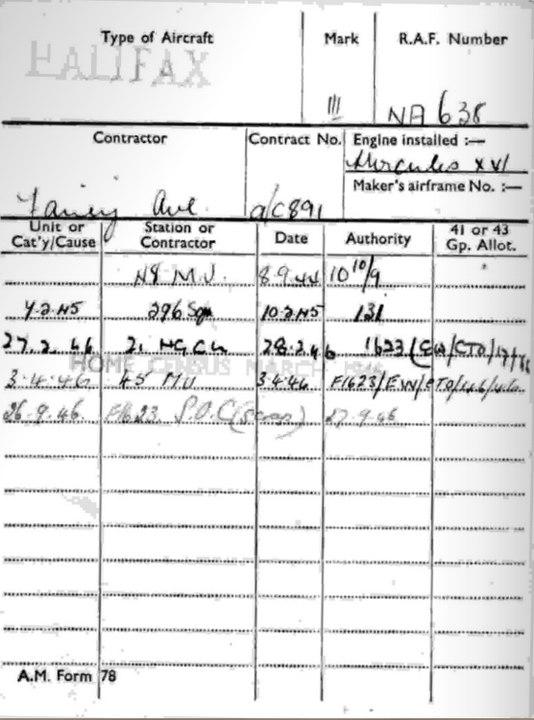 Type of Aircraft Mark R.A.F. Number
HALIFAX III NA 638
Contractor Contract No. Engine installed :—
Hercules XVI
Maker's airframe No. :—
Fairey a/C891
Unit or Cat'y/Cause Station or Contractor Date Authority 41 or 43 Gp. Allot.
48 M.U. 8.9.44 10 10/9
7.2.45 296 Sqn 10.2.45 131
27.2.46 21 H.G.C.U. 28.2.46 1623/EW/CTO/
HOME CENSUS MARCH 1946
3.4.46 45 MU 3.4.46 F1623/EW/CTO/
26.9.46. F1623. S.O.C (scrap) 27.9.46
A.M. Form 78